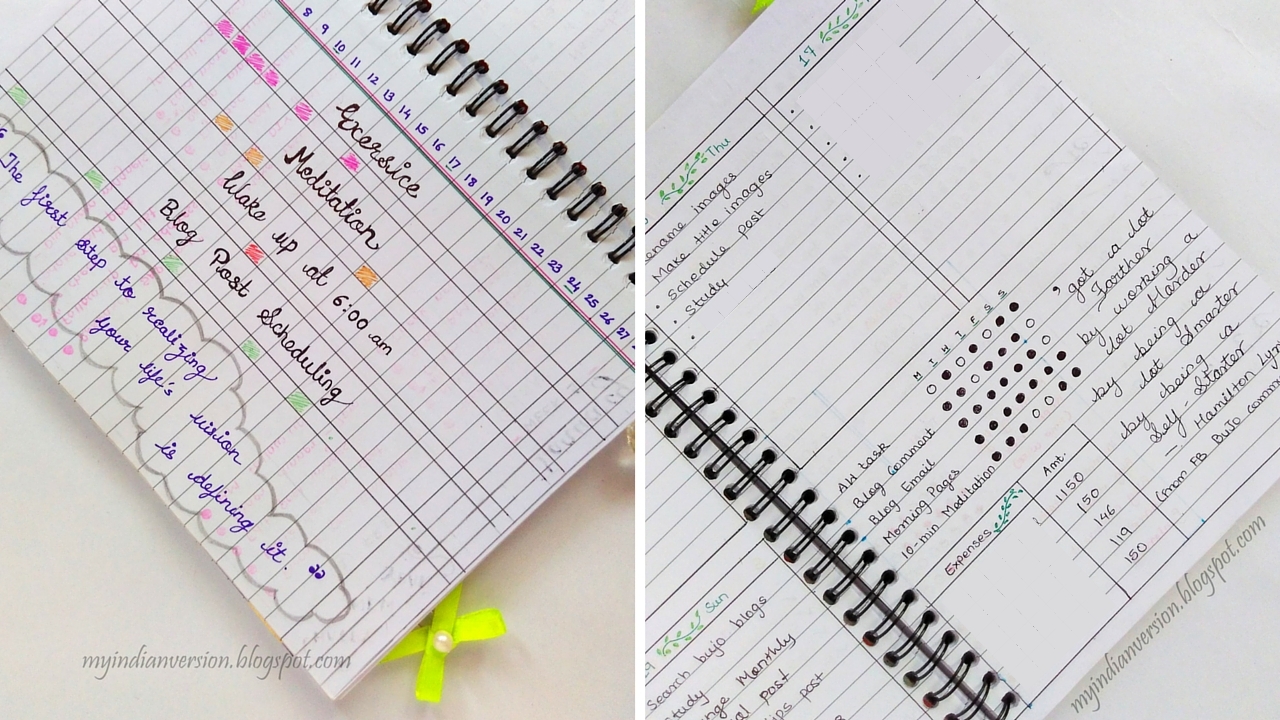 8
9
10
11
12
13
14
15
16
17
18
19
20
21
22
23
24
25
26
27
Exersice
Meditation
Wake up at 6:00 am
Blog Post Scheduling
The first step to realizing
your life's vision
is defining it. "
myindianversion.blogspot.com
17
Thu
Make title images
• Schedule post
• Study
M T W T F S S
Alt task
Blog Comment
Blog Email
Morning Pages
10-min Meditation
, got a lot
Farther
by working a
lot Harder
by being a
lot Smarter
by being a
Self-Starter
- Hamilton
from FB BuJo
Expenses
Amt.
1150
150
146
119
150
Sun
Search bujo blogs
Monthly
post
post
myindianversion.blogspot.com